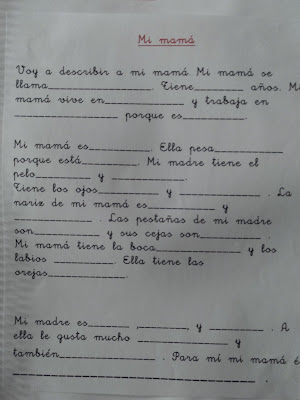 Mi mamá
Voy a describir a mi mamá. Mi mamá se
llama____________. Tiene______ años. Mi
mamá vive en__________ y trabaja en
______________ porque es________.
Mi mamá es________. Ella pesa_________
porque está_______. Mi madre tiene el
pelo_______ y _________.
Tiene los ojos_______ y ________. La
nariz de mi mamá es_________ y
__________. Las pestañas de mi madre
son_________ y sus cejas son_________.
Mi mamá tiene la boca___________ y los
labios ________. Ella tiene las
orejas___________.
Mi madre es_____ ,_______, y _______. A
ella le gusta mucho ____________ y
también_____________. Para mí mi mamá é
_________________________________.